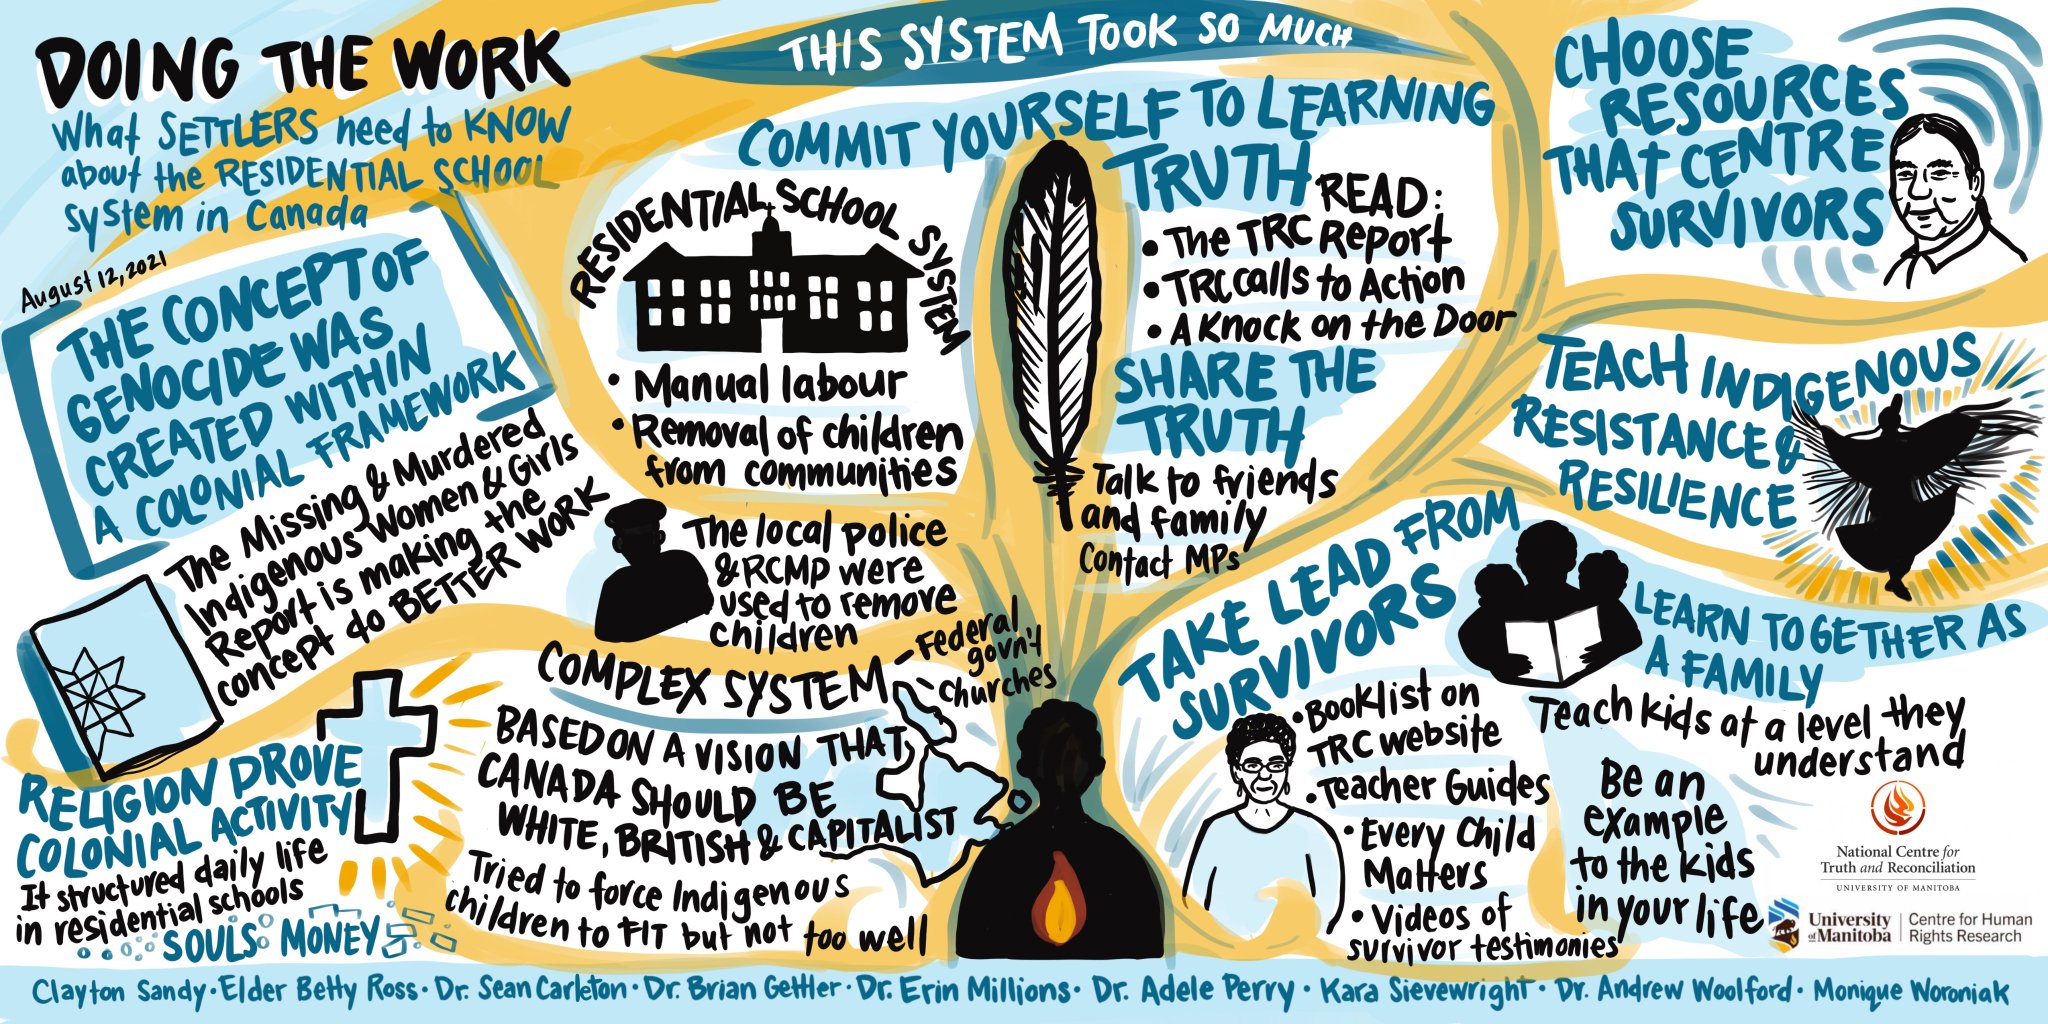 DOING THE WORK
What SETTLERS need to KNOW
about the RESIDENTIAL SCHOOL
system in Canada
August 12, 2021
THE CONCEPT OF
GENOCIDE WAS
CREATED WITHIN
A COLONIAL FRAMEWORK
The Missing & Murdered
Indigenous Women & Girls
Report is making the
concept do BETTER WORK
RELIGION DROVE
COLONIAL ACTIVITY
It structured daily life
in residential schools
SOULS MONEY
THIS SYSTEM TOOK SO MUCH
COMMIT YOURSELF TO LEARNING
TRUTH
RESIDENTIAL SCHOOL SYSTEM
• Manual labour
• Removal of children
from communities
The local police
& RCMP were
used to remove
children
COMPLEX SYSTEM
- Federal
gov'n't
- churches
BASED ON A VISION THAT
CANADA SHOULD BE
WHITE, BRITISH & CAPITALIST
Tried to force Indigenous
children to FIT but not too well
READ:
• The TRC Report
• TRC calls to Action
• A Knock on the Door
SHARE THE
TRUTH
Talk to friends
and family
Contact MPs
TAKE LEAD FROM
SURVIVORS
• Booklist on
TRC website
• Teacher Guides
• Every Child
Matters
• Videos of
survivor testimonies
CHOOSE
RESOURCES
THAT CENTRE
SURVIVORS
TEACH INDIGENOUS
RESISTANCE &
RESILIENCE
LEARN TOGETHER AS
A FAMILY
Teach kids at a level they
understand
Be an
example
to the kids
in your life
National Centre for
Truth and Reconciliation
UNIVERSITY OF MANITOBA
University
of Manitoba
Centre for Human
Rights Research
Clayton Sandy • Elder Betty Ross • Dr. Sean Carleton • Dr. Brian Gettler • Dr. Erin Millions • Dr. Adele Perry • Kara Sievewright • Dr. Andrew Woolford • Monique Woroniak